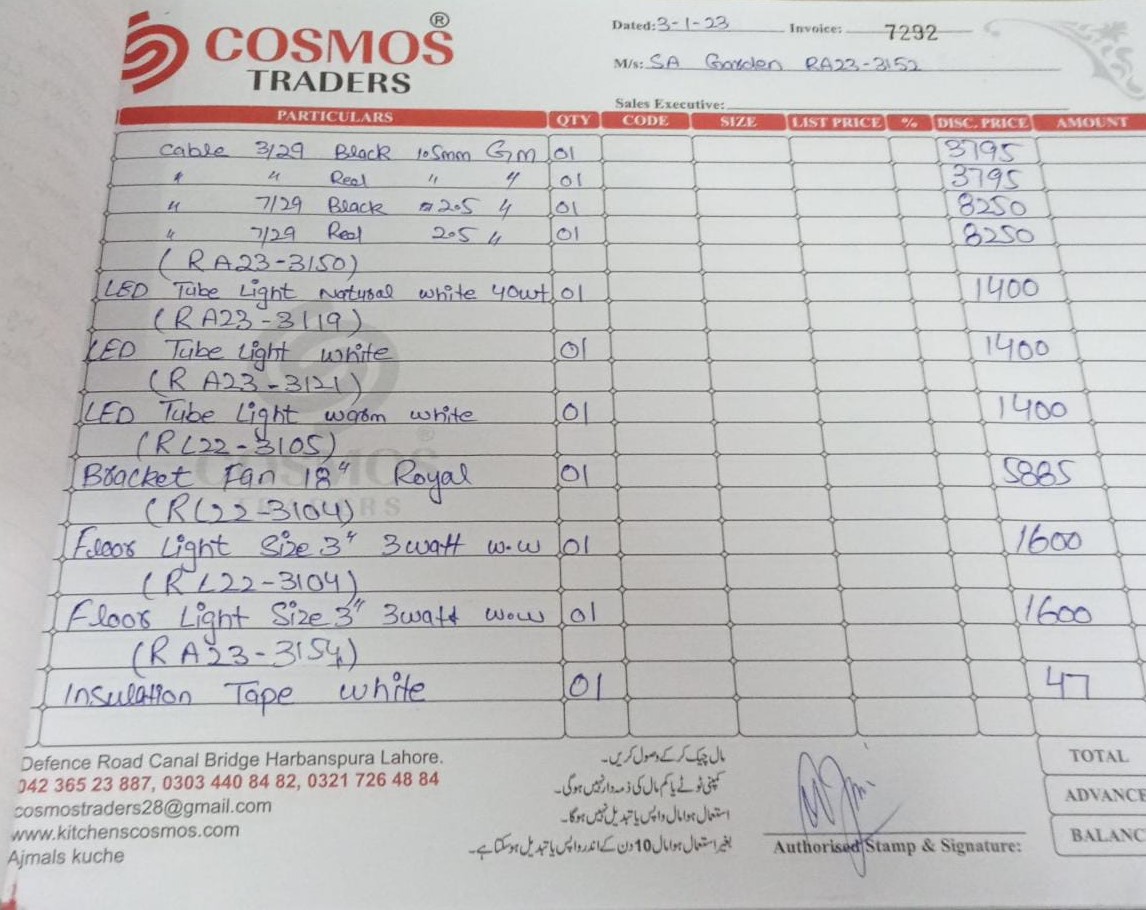 COSMOS ®
TRADERS
Dated: 3-1-23 Invoice: 7292
M/s: SA Garden RA23-3152
Sales Executive:
PARTICULARS QTY CODE SIZE LIST PRICE % DISC. PRICE AMOUNT
Cable 3/29 Black 1.5mm Gm 01 3795
" " Red " " 01 3795
" 7/29 Black 2.5 " 01 8250
" 7/29 Red 2.5 " 01 8250
(RA23-3150)
LED Tube Light Natural white 40wt 01 1400
(RA23-3119)
LED Tube Light white 01 1400
(RA23-3121)
LED Tube Light warm white 01 1400
(RL22-3105)
Bracket Fan 18" Royal 01 5885
(RL22-3104)
Floor Light Size 3" 3watt w.w 01 1600
(RL22-3104)
Floor Light Size 3" 3watt w.w 01 1600
(RA23-3154)
Insulation Tape white 01 47
Defence Road Canal Bridge Harbanspura Lahore.
042 365 23 887, 0303 440 84 82, 0321 726 48 84
cosmostraders28@gmail.com
www.kitchenscosmos.com
Ajmals kuche
مال چیک کر کے وصول کریں۔
کمپنی ٹوٹے یا کم مال کی ذمہ دار نہیں ہوگی۔
استعمال ہوا مال واپس یا تبدیل نہیں ہوگا۔
بغیر استعمال ہوا مال 10 دن کے اندر واپس یا تبدیل ہوسکتا ہے۔
Authorised Stamp & Signature:
TOTAL
ADVANCE
BALANC